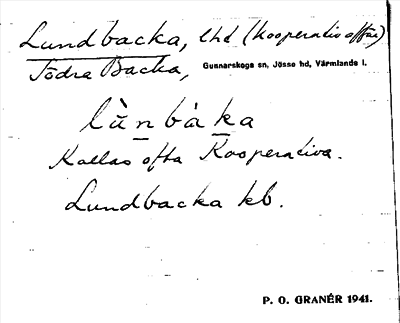 Lundbacka, lhd (Kooperativ affär)
Södra Backa, Gunnarskogs sn, Jösse hd, Värmlands l.
lùnbàka
Kallas ofta Kooperativa.
Lundbacka kb.
P. O. GRANÉR 1941.